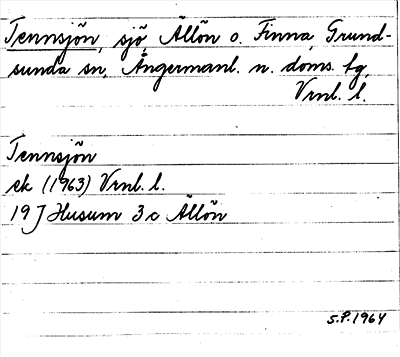 Tennsjön, sjö, Ällön o. Finna, Grund-
sunda sn, Ångermanl. n. doms. fg,
Vrnl. l.
Tennsjön
ek (1963) Vrnl. l.
19 J Husum 3 c Ällön
S.P. 1964